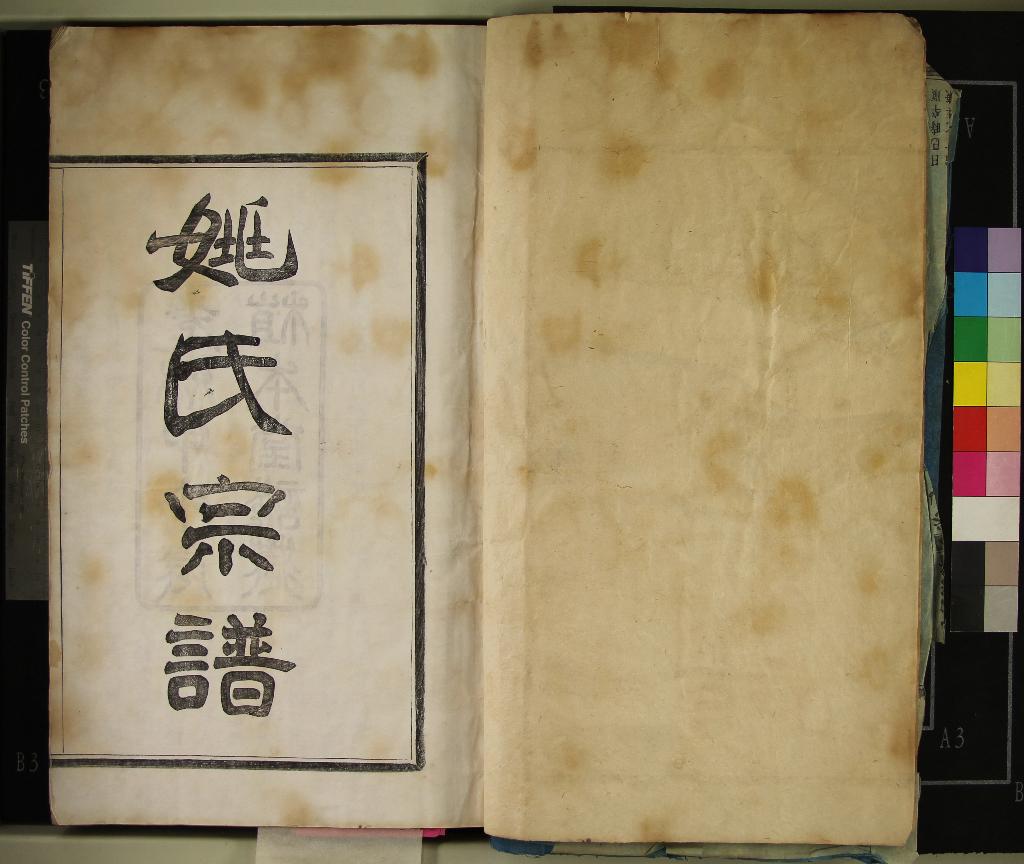 姚氏宗譜
TIFFEN Color Control Patches
B3
A3